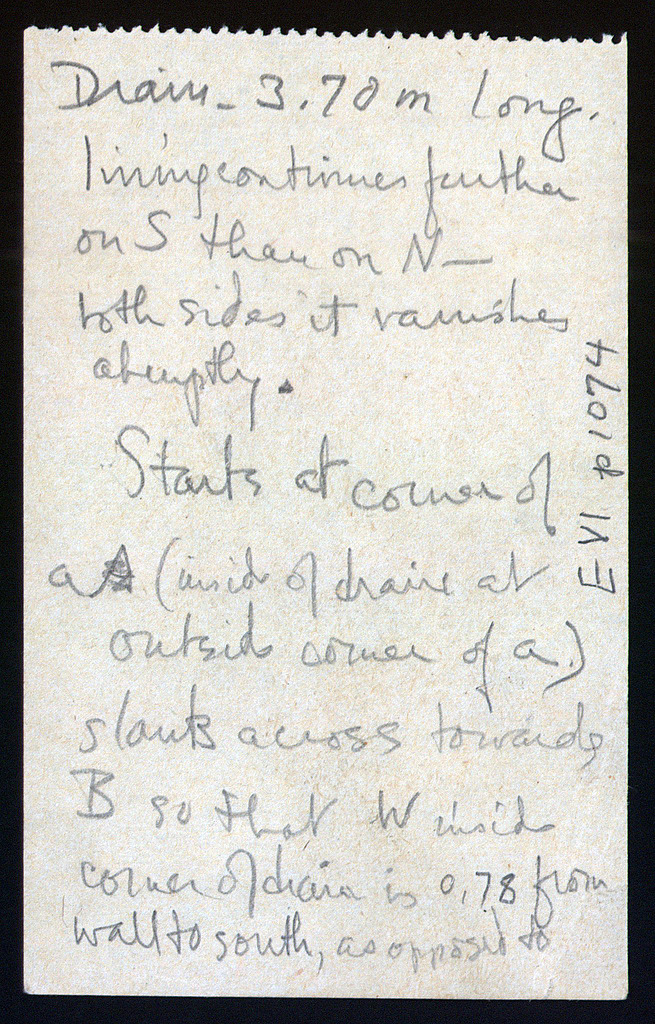 Drain - 3.70 m long.
lining continues further
on S than on N —
both sides it vanishes
abruptly.
Starts at corner of
a (inside of drain at
outside corner of a)
slants across towards
B so that W inside
corner of drain is 0,78 from
wall to south, as opposed to
EVI p 1074